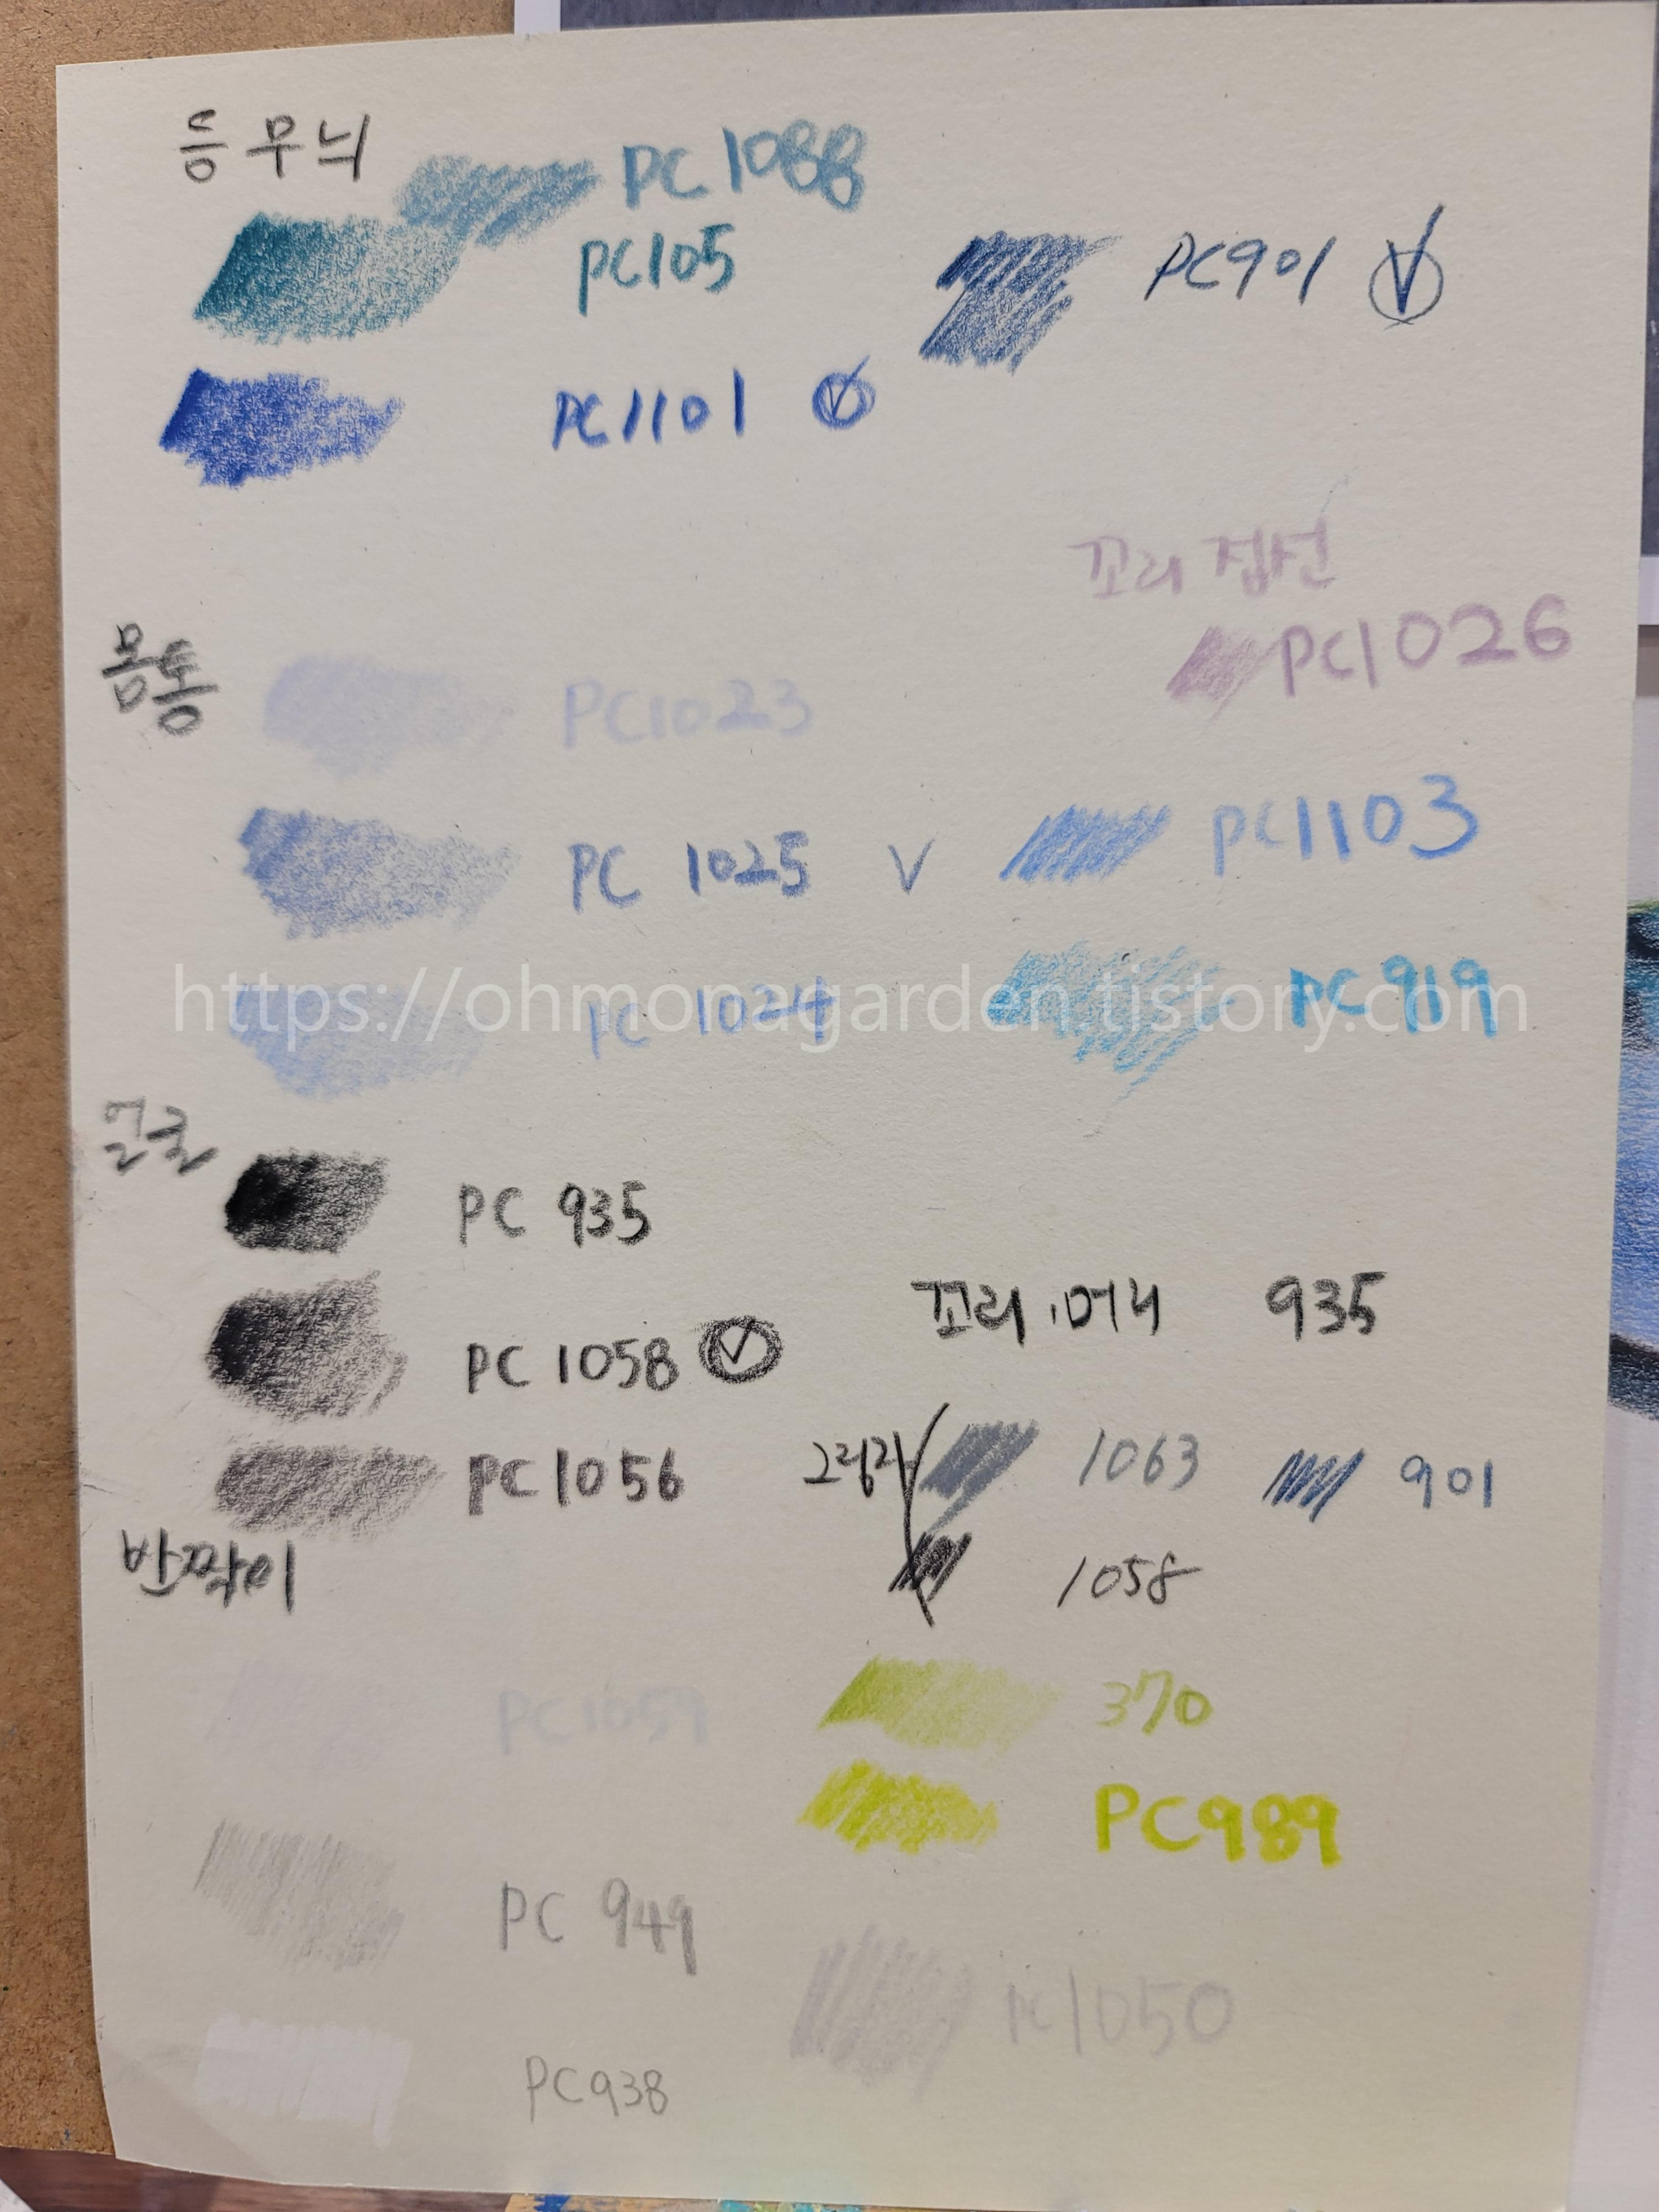 등무늬
PC 1088
PC105
PC901
PC1101
꼬리 접선
PC1026
몸통
PC1023
PC 1025 V
PC1103
PC 1024
PC 919
https://ohmonagarden.tistory.com
얼굴
PC 935
꼬리.머리 935
PC 1058
1063
901
PC1056
1058
반짝이
370
PC989
PC 949
PC1050
PC938